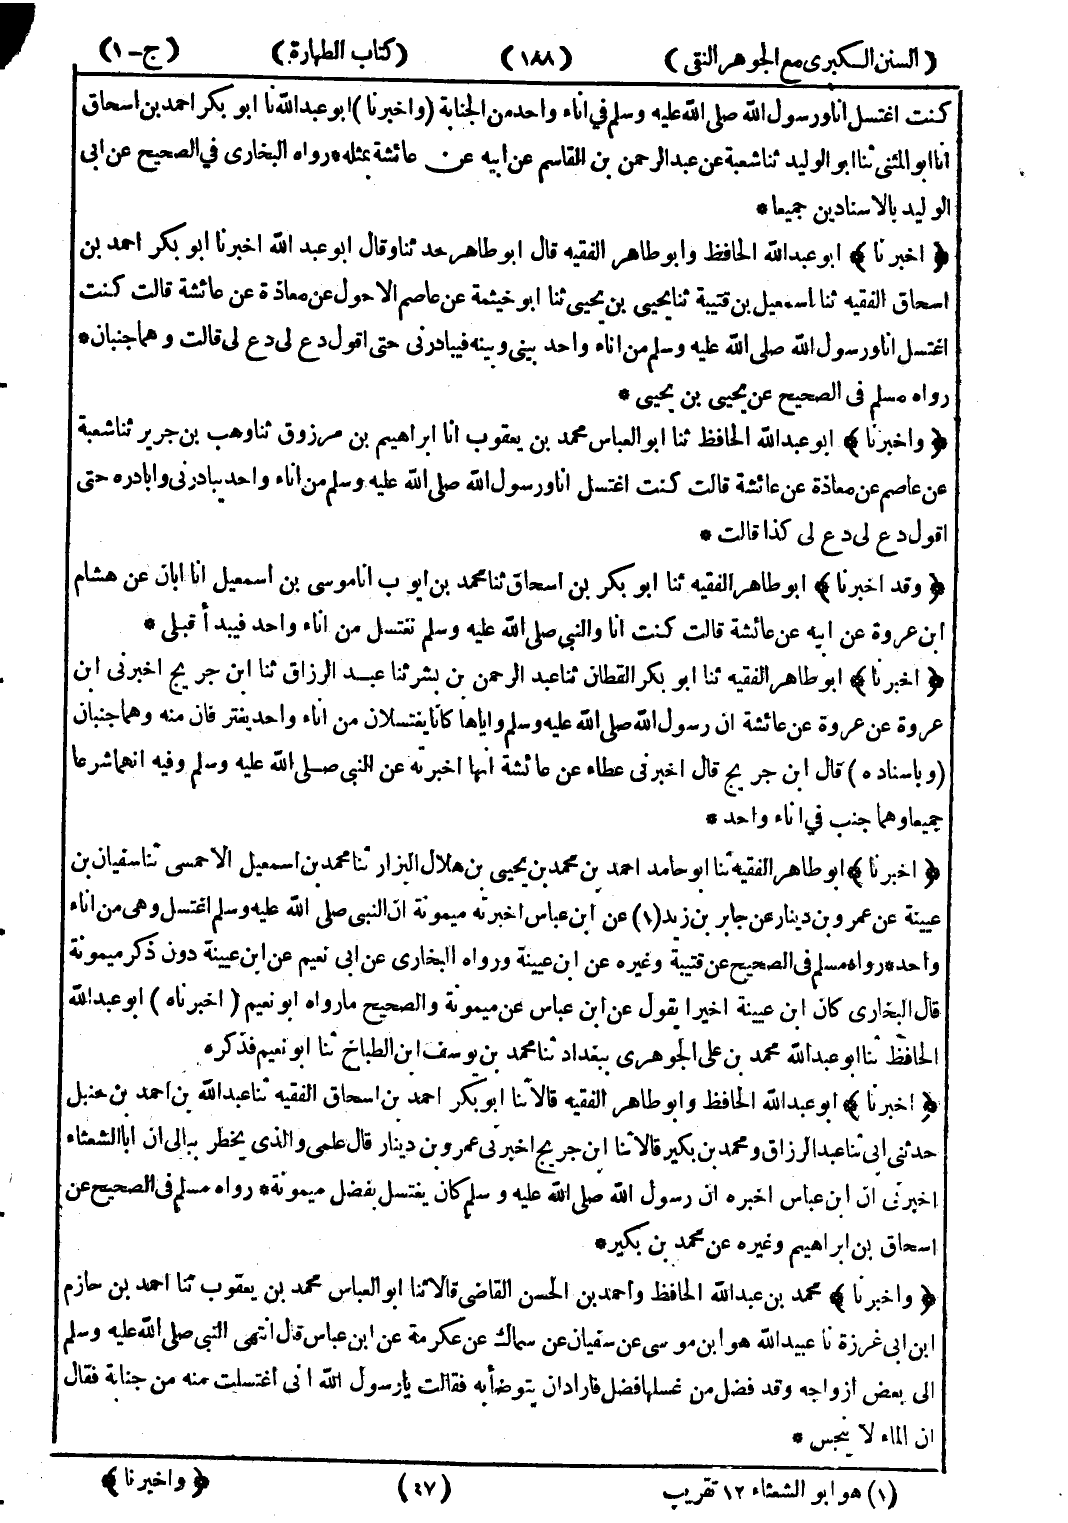 (السنن الكبرى مع الجوهر النقى) (١٨٨) (كتاب الطهارة) (ج-١)
كنت اغتسل انا ورسول الله صلى الله عليه وسلم في اناء واحد من الجنابة (واخبرنا) ابو عبد الله نا ابو بكر احمد بن اسحاق
انا ابو المثنى ثنا ابو الوليد ثنا شعبة عن عبد الرحمن بن القاسم عن ابيه عن عائشة بمثله * رواه البخارى في الصحيح عن ابى
الوليد بالاسنادين جميعا *
﴿ اخبرنا ﴾ ابو عبد الله الحافظ وابو طاهر الفقيه قال ابو طاهر حدثنا وقال ابو عبد الله اخبرنا ابو بكر احمد بن
اسحاق الفقيه ثنا اسمعيل بن قتيبة ثنا يحيى بن يحيى ثنا ابو خيثمة عن عاصم الاحول عن معاذة عن عائشة قالت كنت
اغتسل انا ورسول الله صلى الله عليه وسلم من اناء واحد بينى وبينه فيبادرنى حتى اقول دع لى دع لى قالت وهما جنبان *
رواه مسلم فى الصحيح عن يحيى بن يحيى *
﴿ واخبرنا ﴾ ابو عبد الله الحافظ ثنا ابو العباس محمد بن يعقوب انا ابراهيم بن مرزوق ثنا وهب بن جرير ثنا شعبة
عن عاصم عن معاذة عن عائشة قالت كنت اغتسل انا ورسول الله صلى الله عليه وسلم من اناء واحد يبادرنى وابادره حتى
اقول دع لى دع لى كذا قالت *
﴿ وقد اخبرنا ﴾ ابو طاهر الفقيه ثنا ابو بكر بن اسحاق ثنا محمد بن ايوب انا موسى بن اسمعيل انا ابان عن هشام
ابن عروة عن ابيه عن عائشة قالت كنت انا والنبي صلى الله عليه وسلم نغتسل من اناء واحد فيبدأ قبلى *
﴿ اخبرنا ﴾ ابو طاهر الفقيه ثنا ابو بكر القطان ثنا عبد الرحمن بن بشر ثنا عبد الرزاق ثنا ابن جريج اخبرنى ابن
عروة عن عروة عن عائشة ان رسول الله صلى الله عليه وسلم واياها كانا يغتسلان من اناء واحد يغترفان منه وهما جنبان
(وباسناده) قال ابن جريج قال اخبرنى عطاء عن عائشة انها اخبرته عن النبي صلى الله عليه وسلم وفيه انهما شرعا
جميعا وهما جنب في اناء واحد *
﴿ اخبرنا ﴾ ابو طاهر الفقيه ثنا ابو حامد احمد بن محمد بن يحيى بن هلال البزار ثنا محمد بن اسمعيل الاحمسى ثنا سفيان بن
عيينة عن عمرو بن دينار عن جابر بن زيد (١) عن ابن عباس اخبرته ميمونة ان النبي صلى الله عليه وسلم اغتسل وهى من اناء
واحد * رواه مسلم فى الصحيح عن قتيبة وغيره عن ابن عيينة ورواه البخارى عن ابى نعيم عن ابن عيينة دون ذكر ميمونة
قال البخارى كان ابن عيينة اخيرا يقول عن ابن عباس عن ميمونة والصحيح ما رواه ابو نعيم (اخبرناه) ابو عبد الله
الحافظ ثنا ابو عبد الله محمد بن على الجوهرى ببغداد ثنا محمد بن يوسف ابن الطباخ ثنا ابو نعيم فذكره
﴿ اخبرنا ﴾ ابو عبد الله الحافظ وابو طاهر الفقيه قالا ثنا ابو بكر احمد بن اسحاق الفقيه ثنا عبد الله بن احمد بن حنبل
حدثنى ابى ثنا عبد الرزاق ومحمد بن بكير قالا ثنا ابن جريج اخبرنى عمرو بن دينار قال علمى والذى يخطر ببالى ان ابا الشعثاء
اخبرنى ان ابن عباس اخبره ان رسول الله صلى الله عليه وسلم كان يغتسل بفضل ميمونة * رواه مسلم فى الصحيح عن
اسحاق بن ابراهيم وغيره عن محمد بن بكير *
﴿ واخبرنا ﴾ محمد بن عبد الله الحافظ وأحمد بن الحسن القاضى قالا ثنا ابو العباس محمد بن يعقوب ثنا احمد بن حازم
ابن ابى غرزة نا عبيد الله هو ابن موسى عن سفيان عن سماك عن عكرمة عن ابن عباس قال انتهى النبي صلى الله عليه وسلم
الى بعض ازواجه وقد فضل من غسلها فضل فاراد ان يتوضأ به فقالت يا رسول الله انى اغتسلت منه من جنابة فقال
ان الماء لا ينجس *
(١) هو ابو الشعثاء ١٢ تقريب (٤٧) ﴿ واخبرنا ﴾